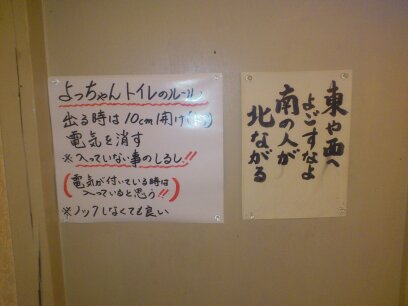 よっちゃんトイレのルール
出る時は10cm開け
電気を消す
※入っていない事のしるし!!
(電気が付いている時は
入っていると思う!!)
※ノックしなくても良い
東や西へ
よごすなよ
南の人が
北ながる